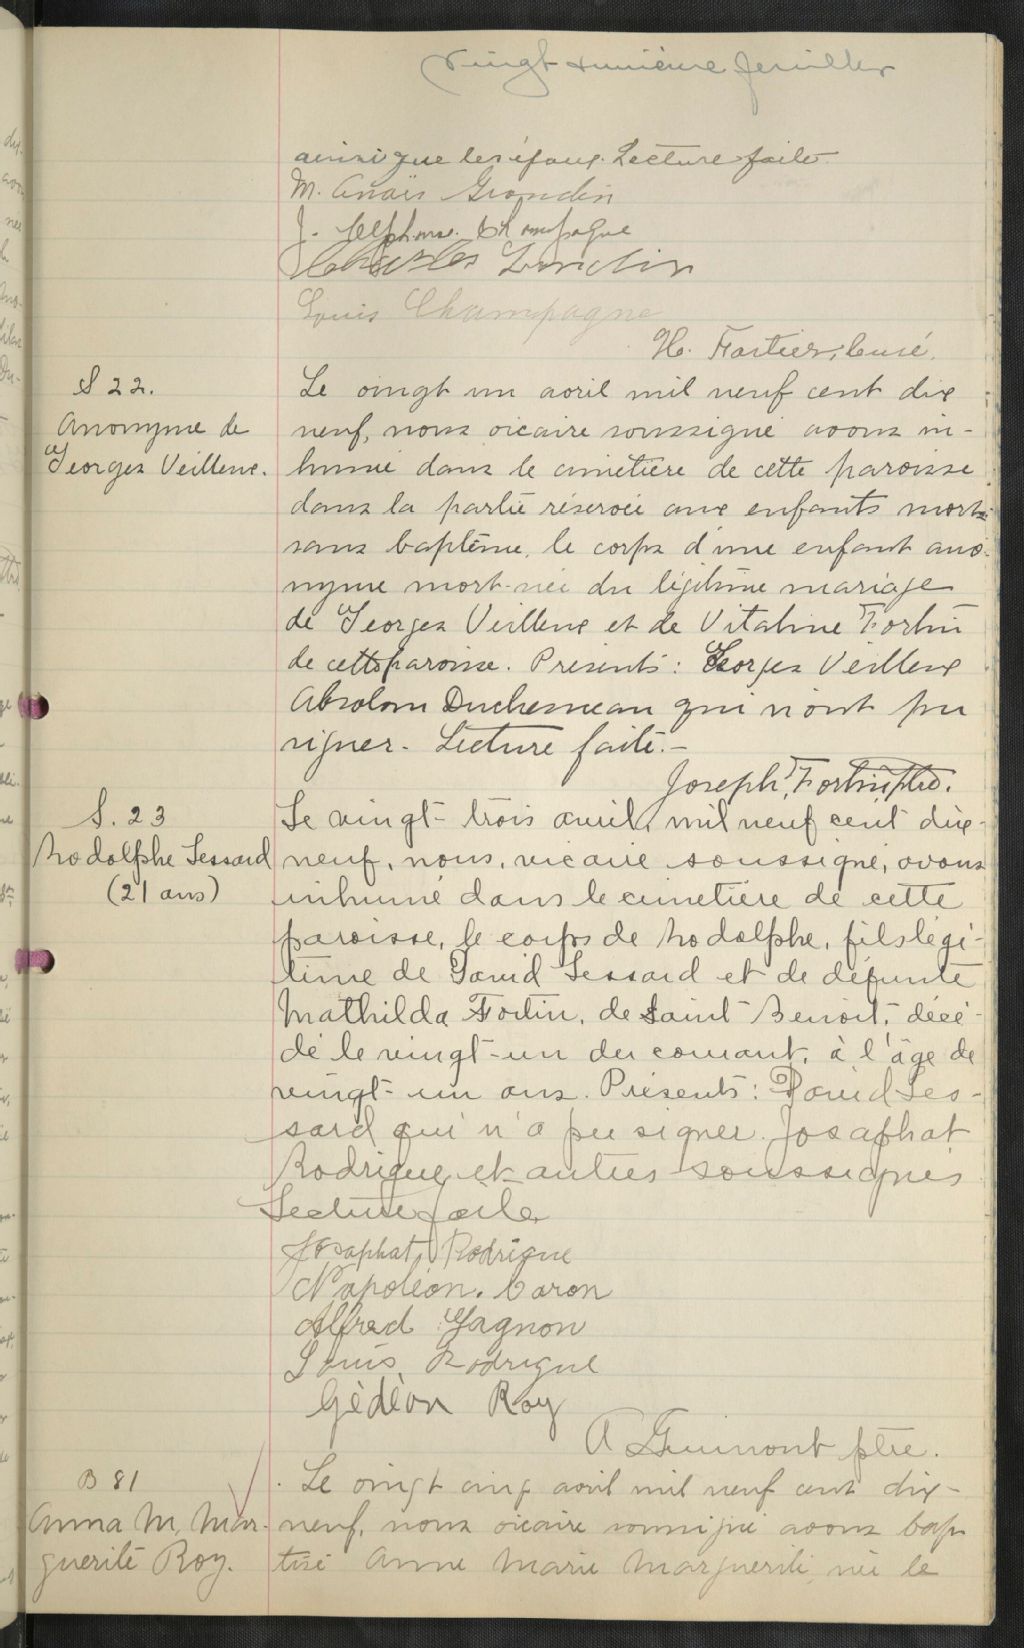 Vingt & unième feuillet
ainsi que les époux. Lecture faite.
M. Anaïs Grondin
J. Alphonse Champagne
Charles Grondin
Louis Champagne
H. Fortier, Curé.
S 22.
Anonyme de
Georges Veilleux.
Le vingt un avril mil neuf cent dix
neuf, nous vicaire soussigné avons in-
humé dans le cimetière de cette paroisse
dans la partie réservée aux enfants morts
sans baptême, le corps d'une enfant ano-
nyme mort-née du légitime mariage
de Georges Veilleux et de Vitaline Fortin
de cette paroisse. Présents: Georges Veilleux
Absolom Duchesneau qui n'ont pu
signer. Lecture faite.-
Joseph Fortin, ptre.
S. 23
Rodolphe Lessard
(21 ans)
Le vingt-trois avril, mil neuf cent dix-
neuf, nous, vicaire soussigné, avons
inhumé dans le cimetière de cette
paroisse, le corps de Rodolphe, fils légi-
time de David Lessard et de défunte
Mathilda Fortin, de Saint-Benoit, décé-
dé le vingt-un du courant, à l'âge de
vingt-un ans. Présents: David Les-
sard qui n'a pu signer. Josaphat
Rodrigue et autres soussignés
Lecture faite.
Josaphat Rodrigue
Napoléon. Caron
Alfred Gagnon
Louis Rodrigue
Gédéon Roy
A Guimont ptre.
B 81
Anna M, Mar-
guerite Roy.
Le vingt cinq avril mil neuf cent dix-
neuf, nous vicaire soussigné avons bap
tisé Anne Marie Marguerite, née le